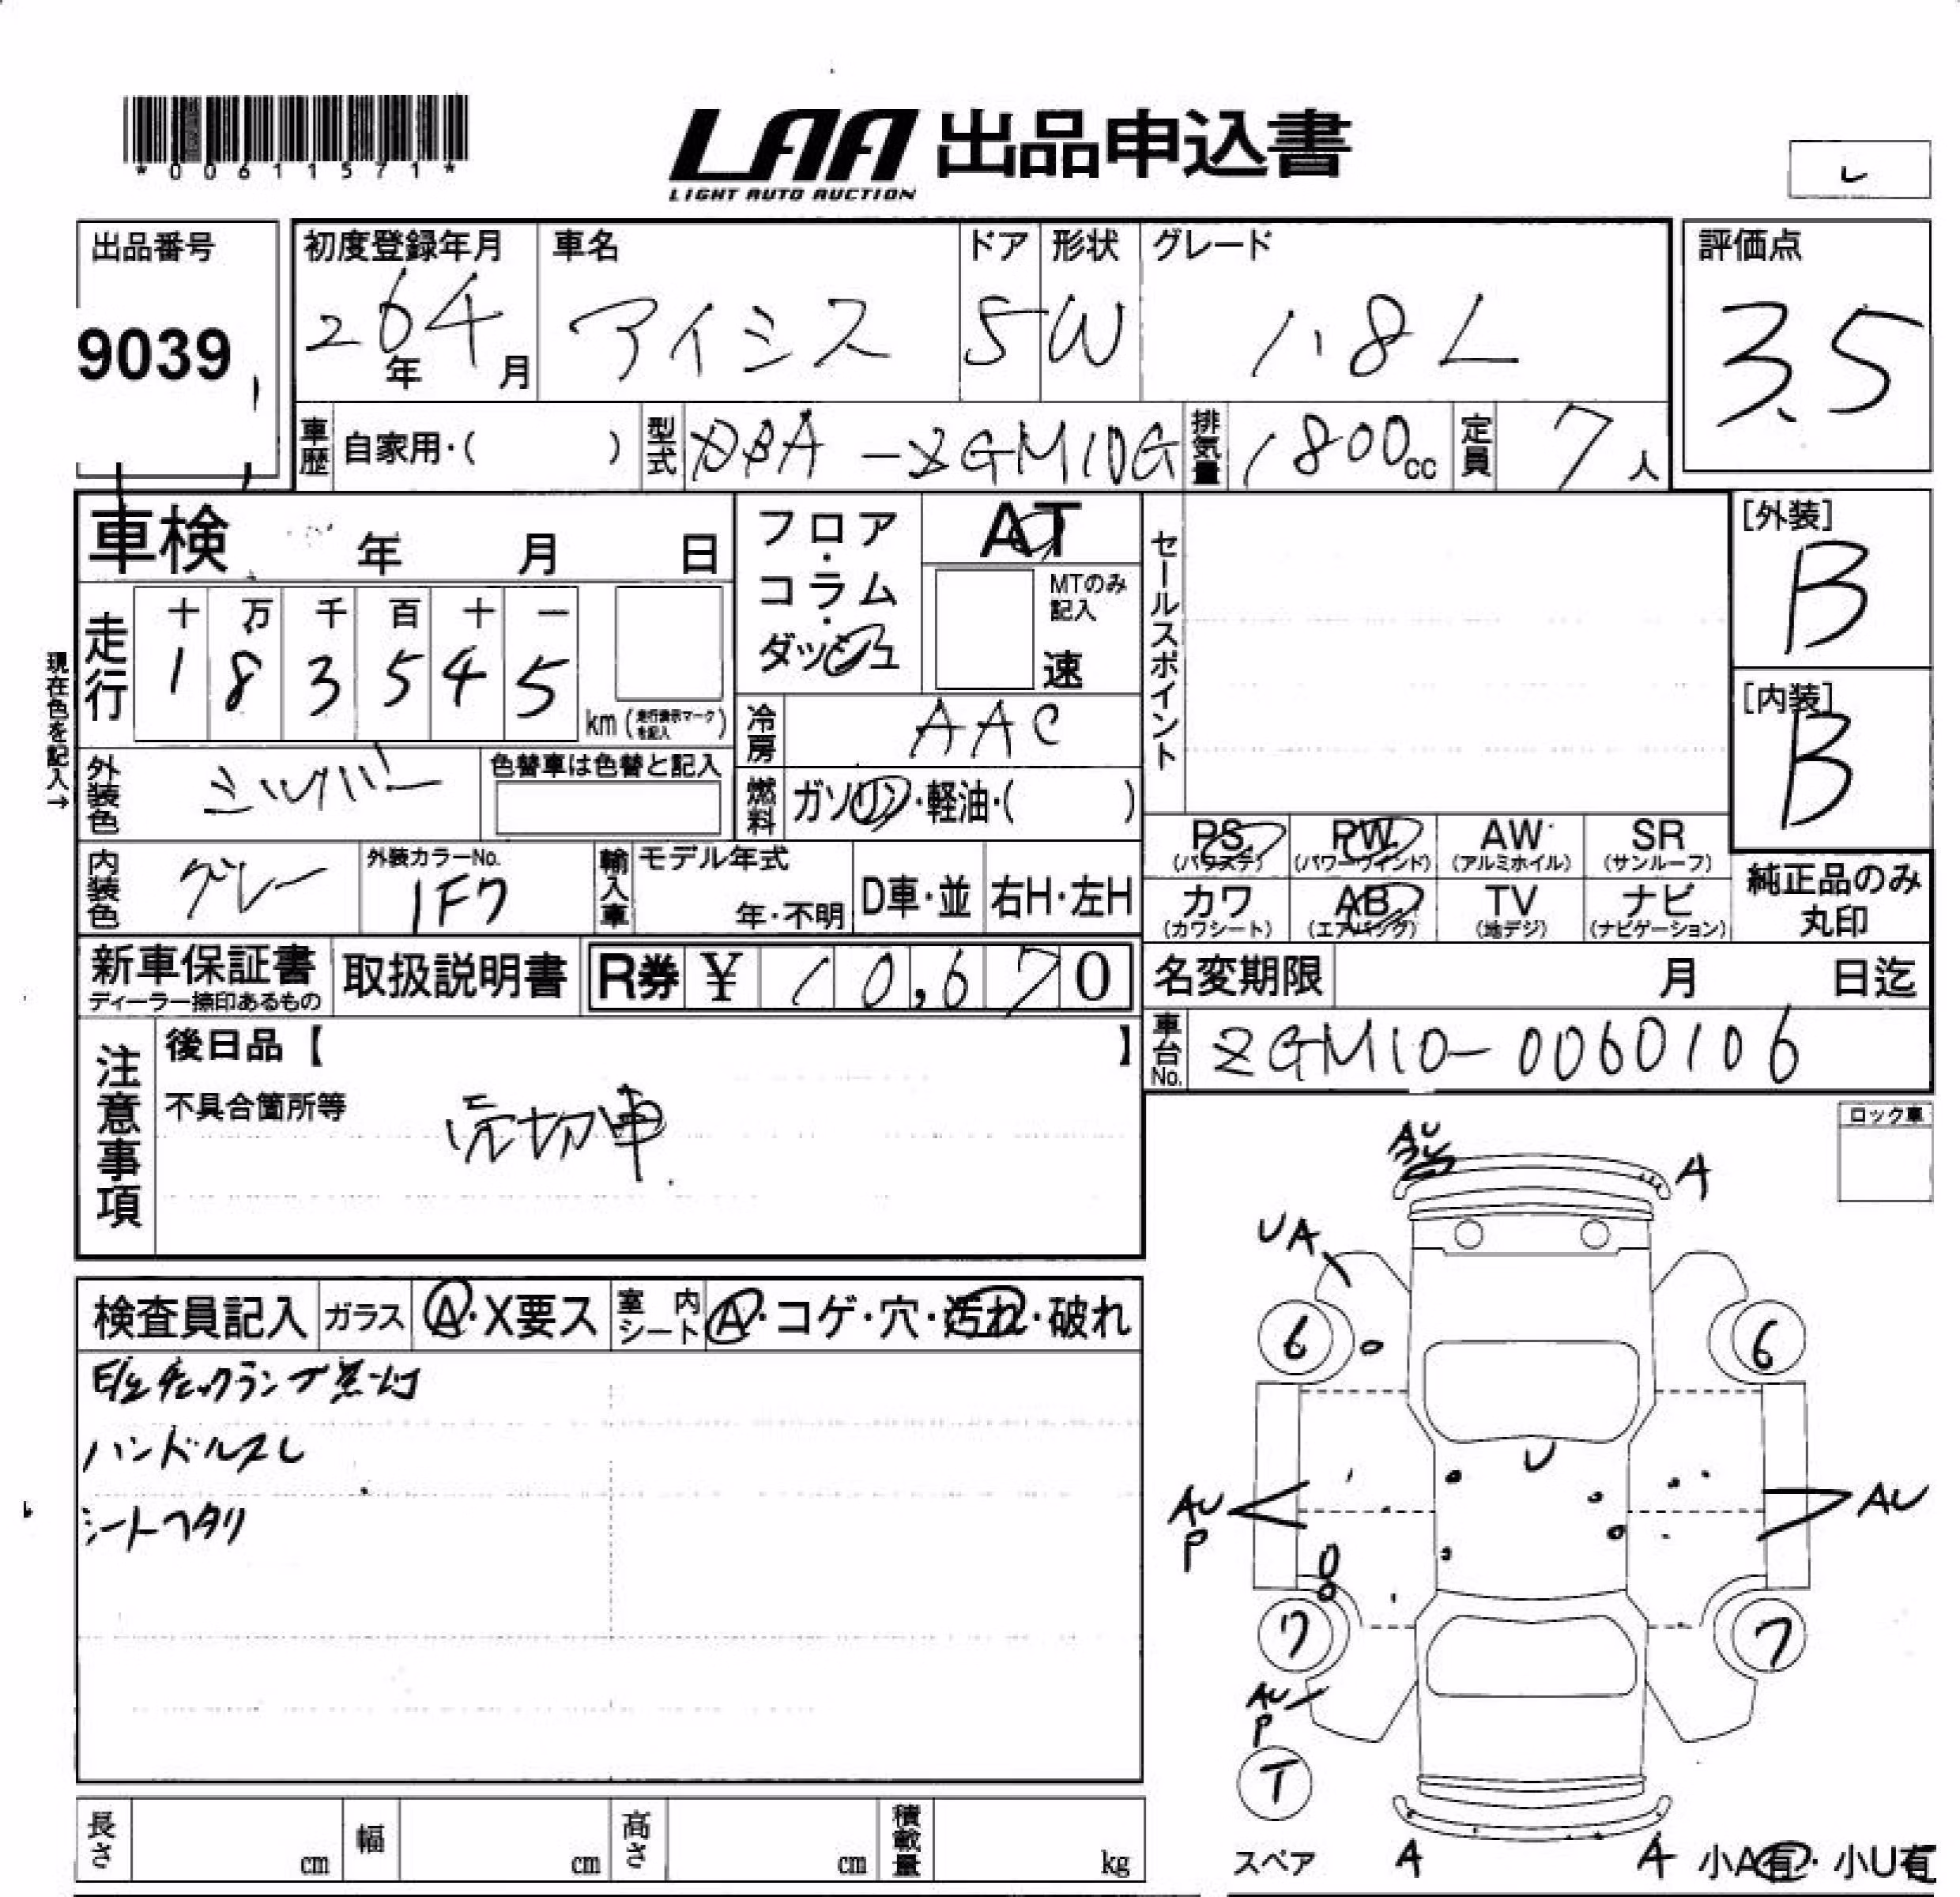 *00611571*
LAA 出品申込書
LIGHT AUTO AUCTION
レ
出品番号 初度登録年月 車名 ドア 形状 グレード 評価点
9039 26年4月 アイシス 5 W 1.8L 3.5
車歴 自家用・( ) 型式 DBA-ZGM10G 排気量 1800cc 定員 7人
車検 年 月 日
フロア・コラム・ダッシュ
AT
MTのみ記入
速
セールスポイント
[外装]
B
[内装]
B
現在色を記入→
走行 十 万 千 百 十 一
1 8 3 5 4 5 km (走行表示マークを記入)
冷房 AAC
外装色 シルバー 色替車は色替と記入
燃料 ガソリン・軽油・( )
内装色 グレー 外装カラーNo. 1F7
輸入車 モデル年式 年・不明 D車・並 右H・左H
PS (パワステ) PW (パワーウインド) AW (アルミホイル) SR (サンルーフ)
カワ (カワシート) AB (エアバッグ) TV (地デジ) ナビ (ナビゲーション)
純正品のみ
丸印
新車保証書 ディーラー捺印あるもの 取扱説明書 R券 ¥ 10,670
名変期限 月 日迄
車台No. ZGM10-0060106
注意事項
後日品【 】
不具合箇所等 売切車
ロック車
検査員記入 ガラス A・X要ス 室内シート A・コゲ・穴・汚れ・破れ
チェックランプ
ハンドルスレ
シートヘタリ
AU
A
UA
6
6
U
AU
P
AU
7
7
AU
P
T
スペア
A
A
小A有・小U有
長さ cm 幅 cm 高さ cm 積載量 kg